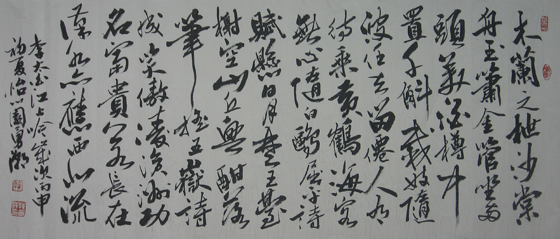 木蘭之枻沙棠
舟玉簫金管坐兩
頭美酒樽中
置千斛載妓隨
波任去留僊人有
待乘黃鶴海客
無心隨白鷗屈平詩
賦懸日月楚王臺
榭空山丘興酣落
筆搖五嶽詩
成笑傲凌滄洲功
名富貴若長在
漢水亦應西北流
李太白江上吟歲次丙申
初夏怡心園